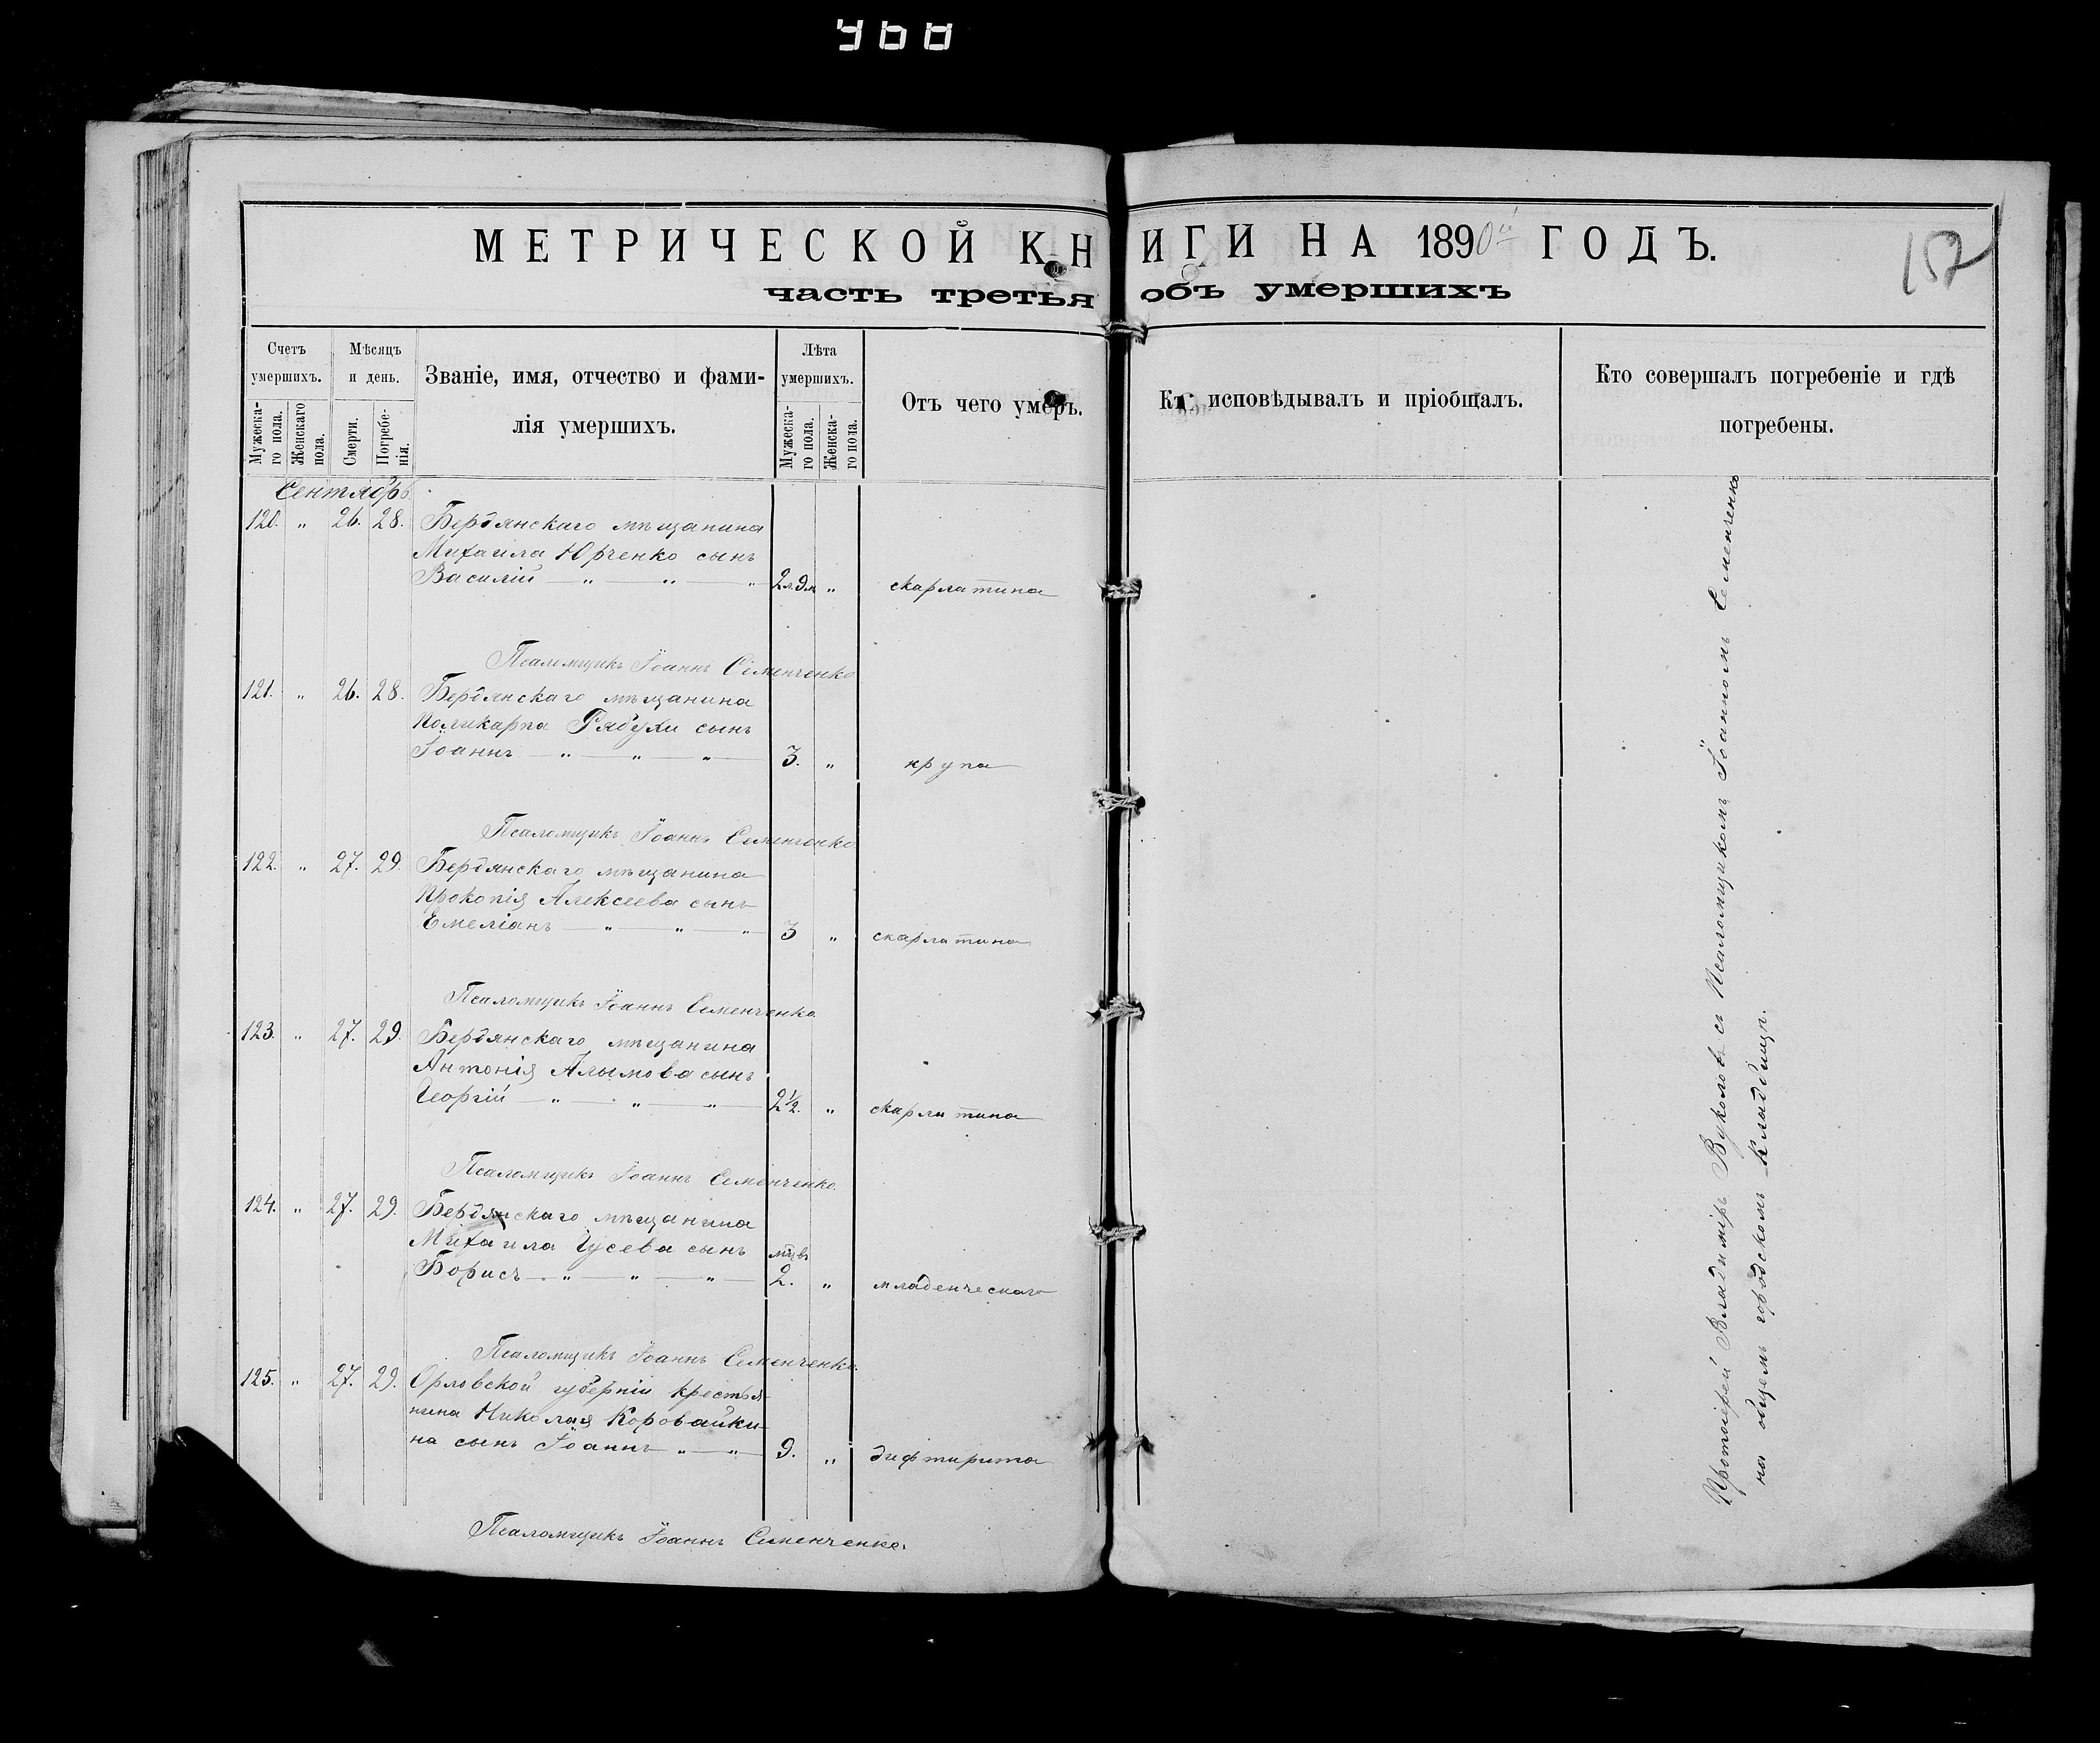 966
МЕТРИЧЕСКОЙ КНИГИ НА 1890й ГОДЪ.
152
часть третья объ умершихъ
Счетъ умершихъ.
Мужеска-го пола.
Женскаго пола.
Мѣсяцъ и день.
Смерти.
Погребе-нія.
Званіе, имя, отчество и фами-
лія умершихъ.
Лѣта умершихъ.
Мужеска-го пола.
Женска-го пола.
Отъ чего умеръ.
Кто исповѣдывалъ и пріобщалъ.
Кто совершалъ погребеніе и гдѣ
погребены.
Сентябрь
120. „ 26. 28. Бердянскаго мѣщанина
Михаила Юрченко сынъ
Василій — „ — „ — „ 2л.9м „ скарлатина
Псаломщикъ Іоаннъ Семенченко
121. „ 26. 28. Бердянскаго мѣщанина
Поликарпа Рябухи сынъ
Іоаннъ — „ — „ — „ — 3. „ крупа
Псаломщикъ Іоаннъ Семенченко
122. „ 27. 29. Бердянскаго мѣщанина
Прокопія Алексеева сынъ
Емеліанъ — „ — „ — „ 3 „ скарлатина
Псаломщикъ Іоаннъ Семенченко
123. „ 27. 29. Бердянскаго мѣщанина
Антонія Алымова сынъ
Георгій — „ — „ — „ — 2½. „ скарлатина
Псаломщикъ Іоаннъ Семенченко.
124. „ 27. 29. Бердянскаго мѣщанина
Михаила Гусева сынъ мцъ
Борисъ — „ — „ — „ — 2. „ младенческаго
Псаломщикъ Іоаннъ Семенченко.
125. „ 27. 29. Орловской губерніи крестья-
нина Николая Коровайки-
на сынъ Іоаннъ „ — „ — 9. „ дифтирита
Псаломщикъ Іоаннъ Семенченко.
Протоіерей Владиміръ Вуколовъ съ Псаломщикомъ Іоанномъ Семенченко
на общемъ городскомъ кладбищѣ.